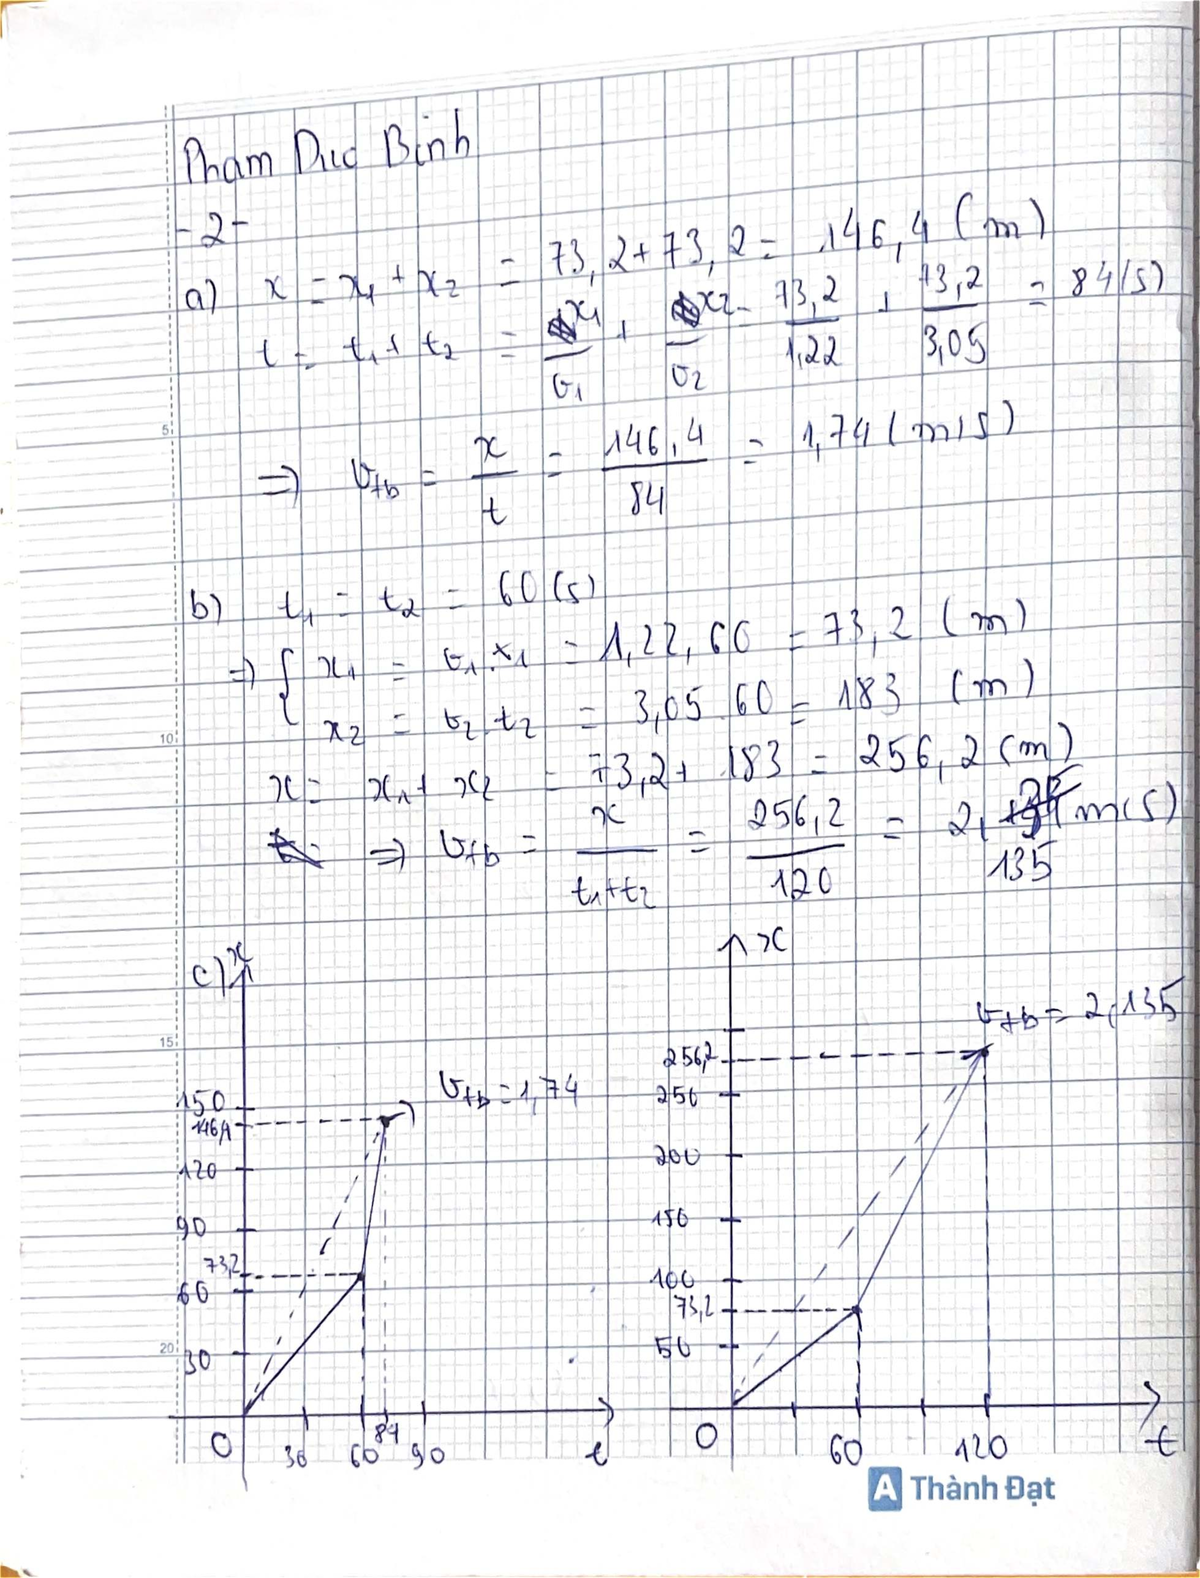 Pham Duc Binh
-2-
a) x = x₁ + x₂ = 73,2 + 73,2 = 146,4 (m)
t = t₁ + t₂ = x₁/v₁ + x₂/v₂ = 73,2/1,22 + 73,2/3,05 = 84 (s)
=> v_tb = x/t = 146,4/84 = 1,74 (m/s)
b) t₁ = t₂ = 60 (s)
=> { x₁ = v₁.t₁ = 1,22.60 = 73,2 (m)
x₂ = v₂.t₂ = 3,05.60 = 183 (m)
x = x₁ + x₂ = 73,2 + 183 = 256,2 (m)
=> v_tb = x/(t₁+t₂) = 256,2/120 = 2,135 (m/s)
c) x
150
146,4
120
90
73,2
60
30
0
30
60
84
90
t
v_tb = 1,74
x
256,2
250
200
150
100
73,2
50
0
60
120
t
v_tb = 2,135
A Thành Đạt
5
10
15
20